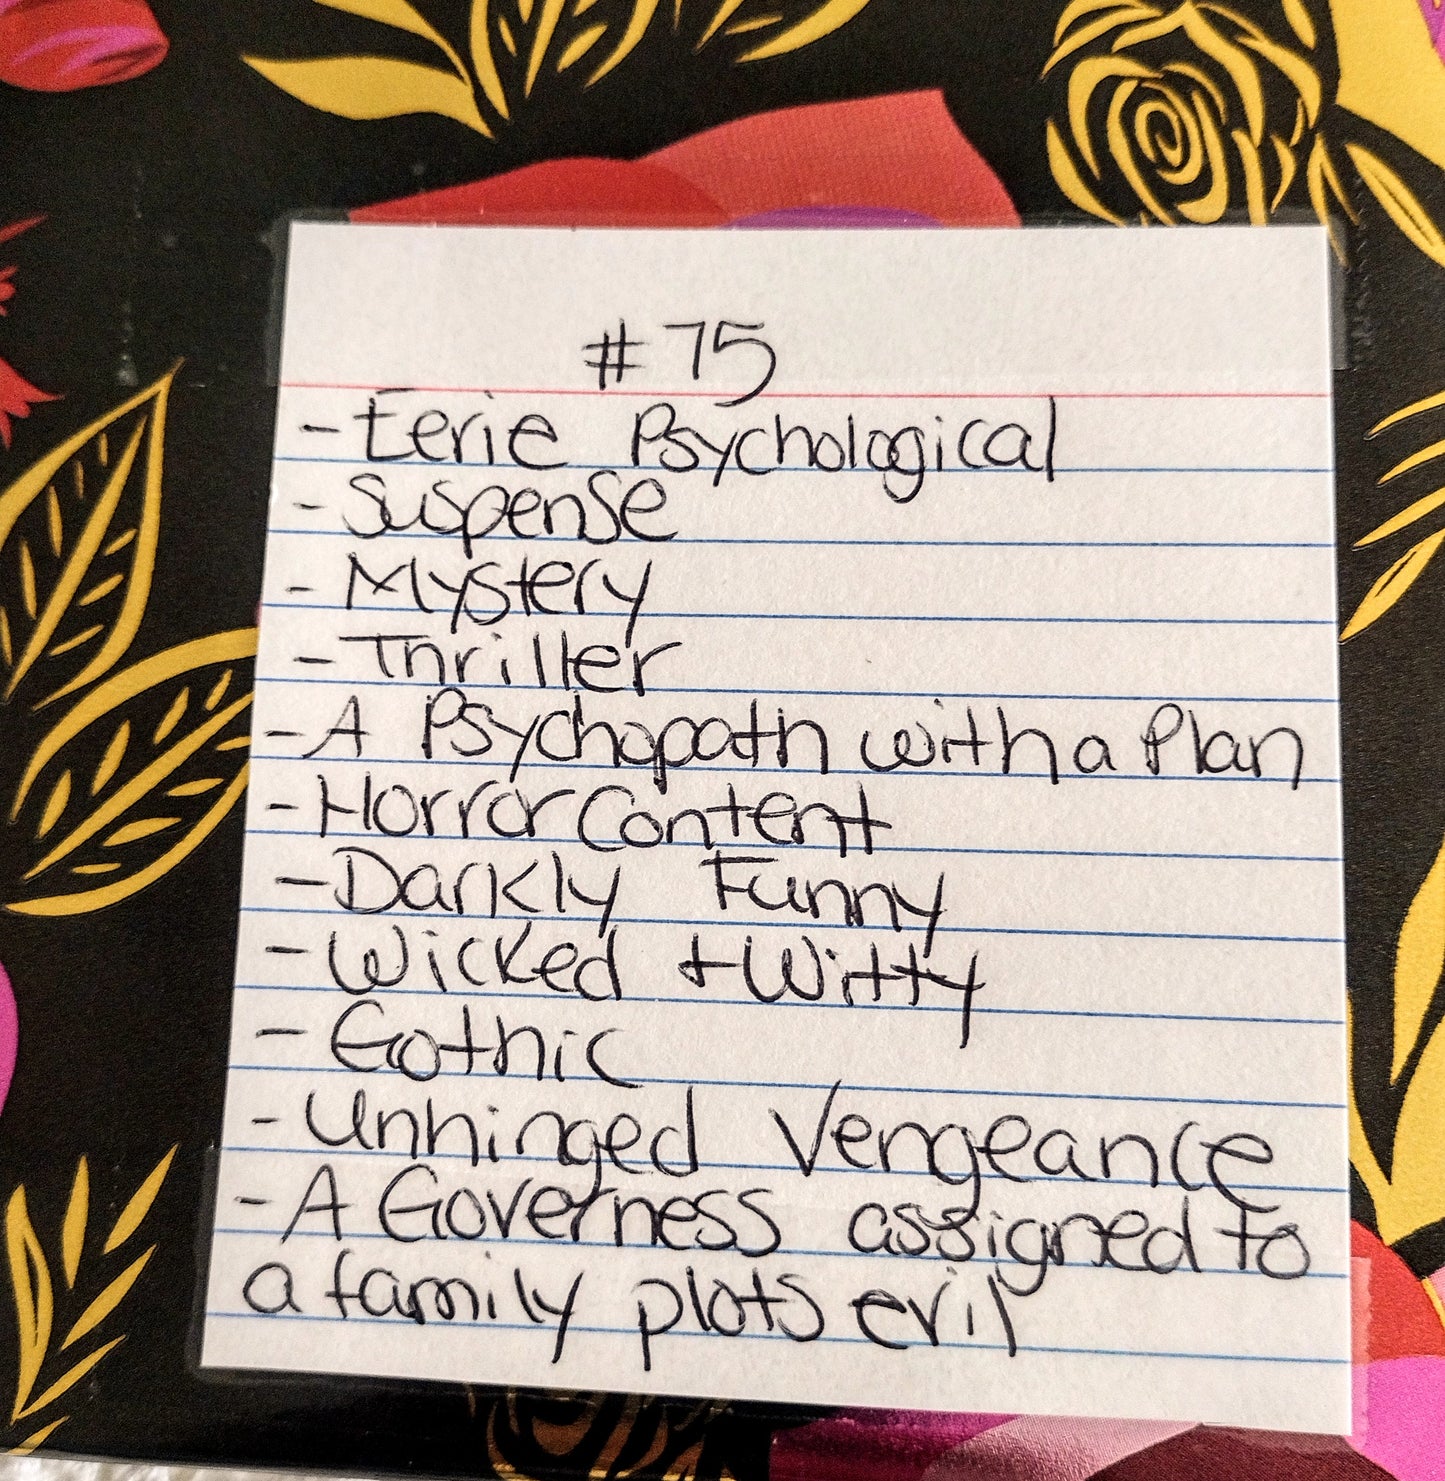 #75
- Eerie Psychological
- Suspense
- Mystery
- Thriller
- A Psychopath with a Plan
- Horror Content
- Darkly Funny
- Wicked + Witty
- Gothic
- Unhinged Vengeance
- A Governess assigned to
a family plots evil